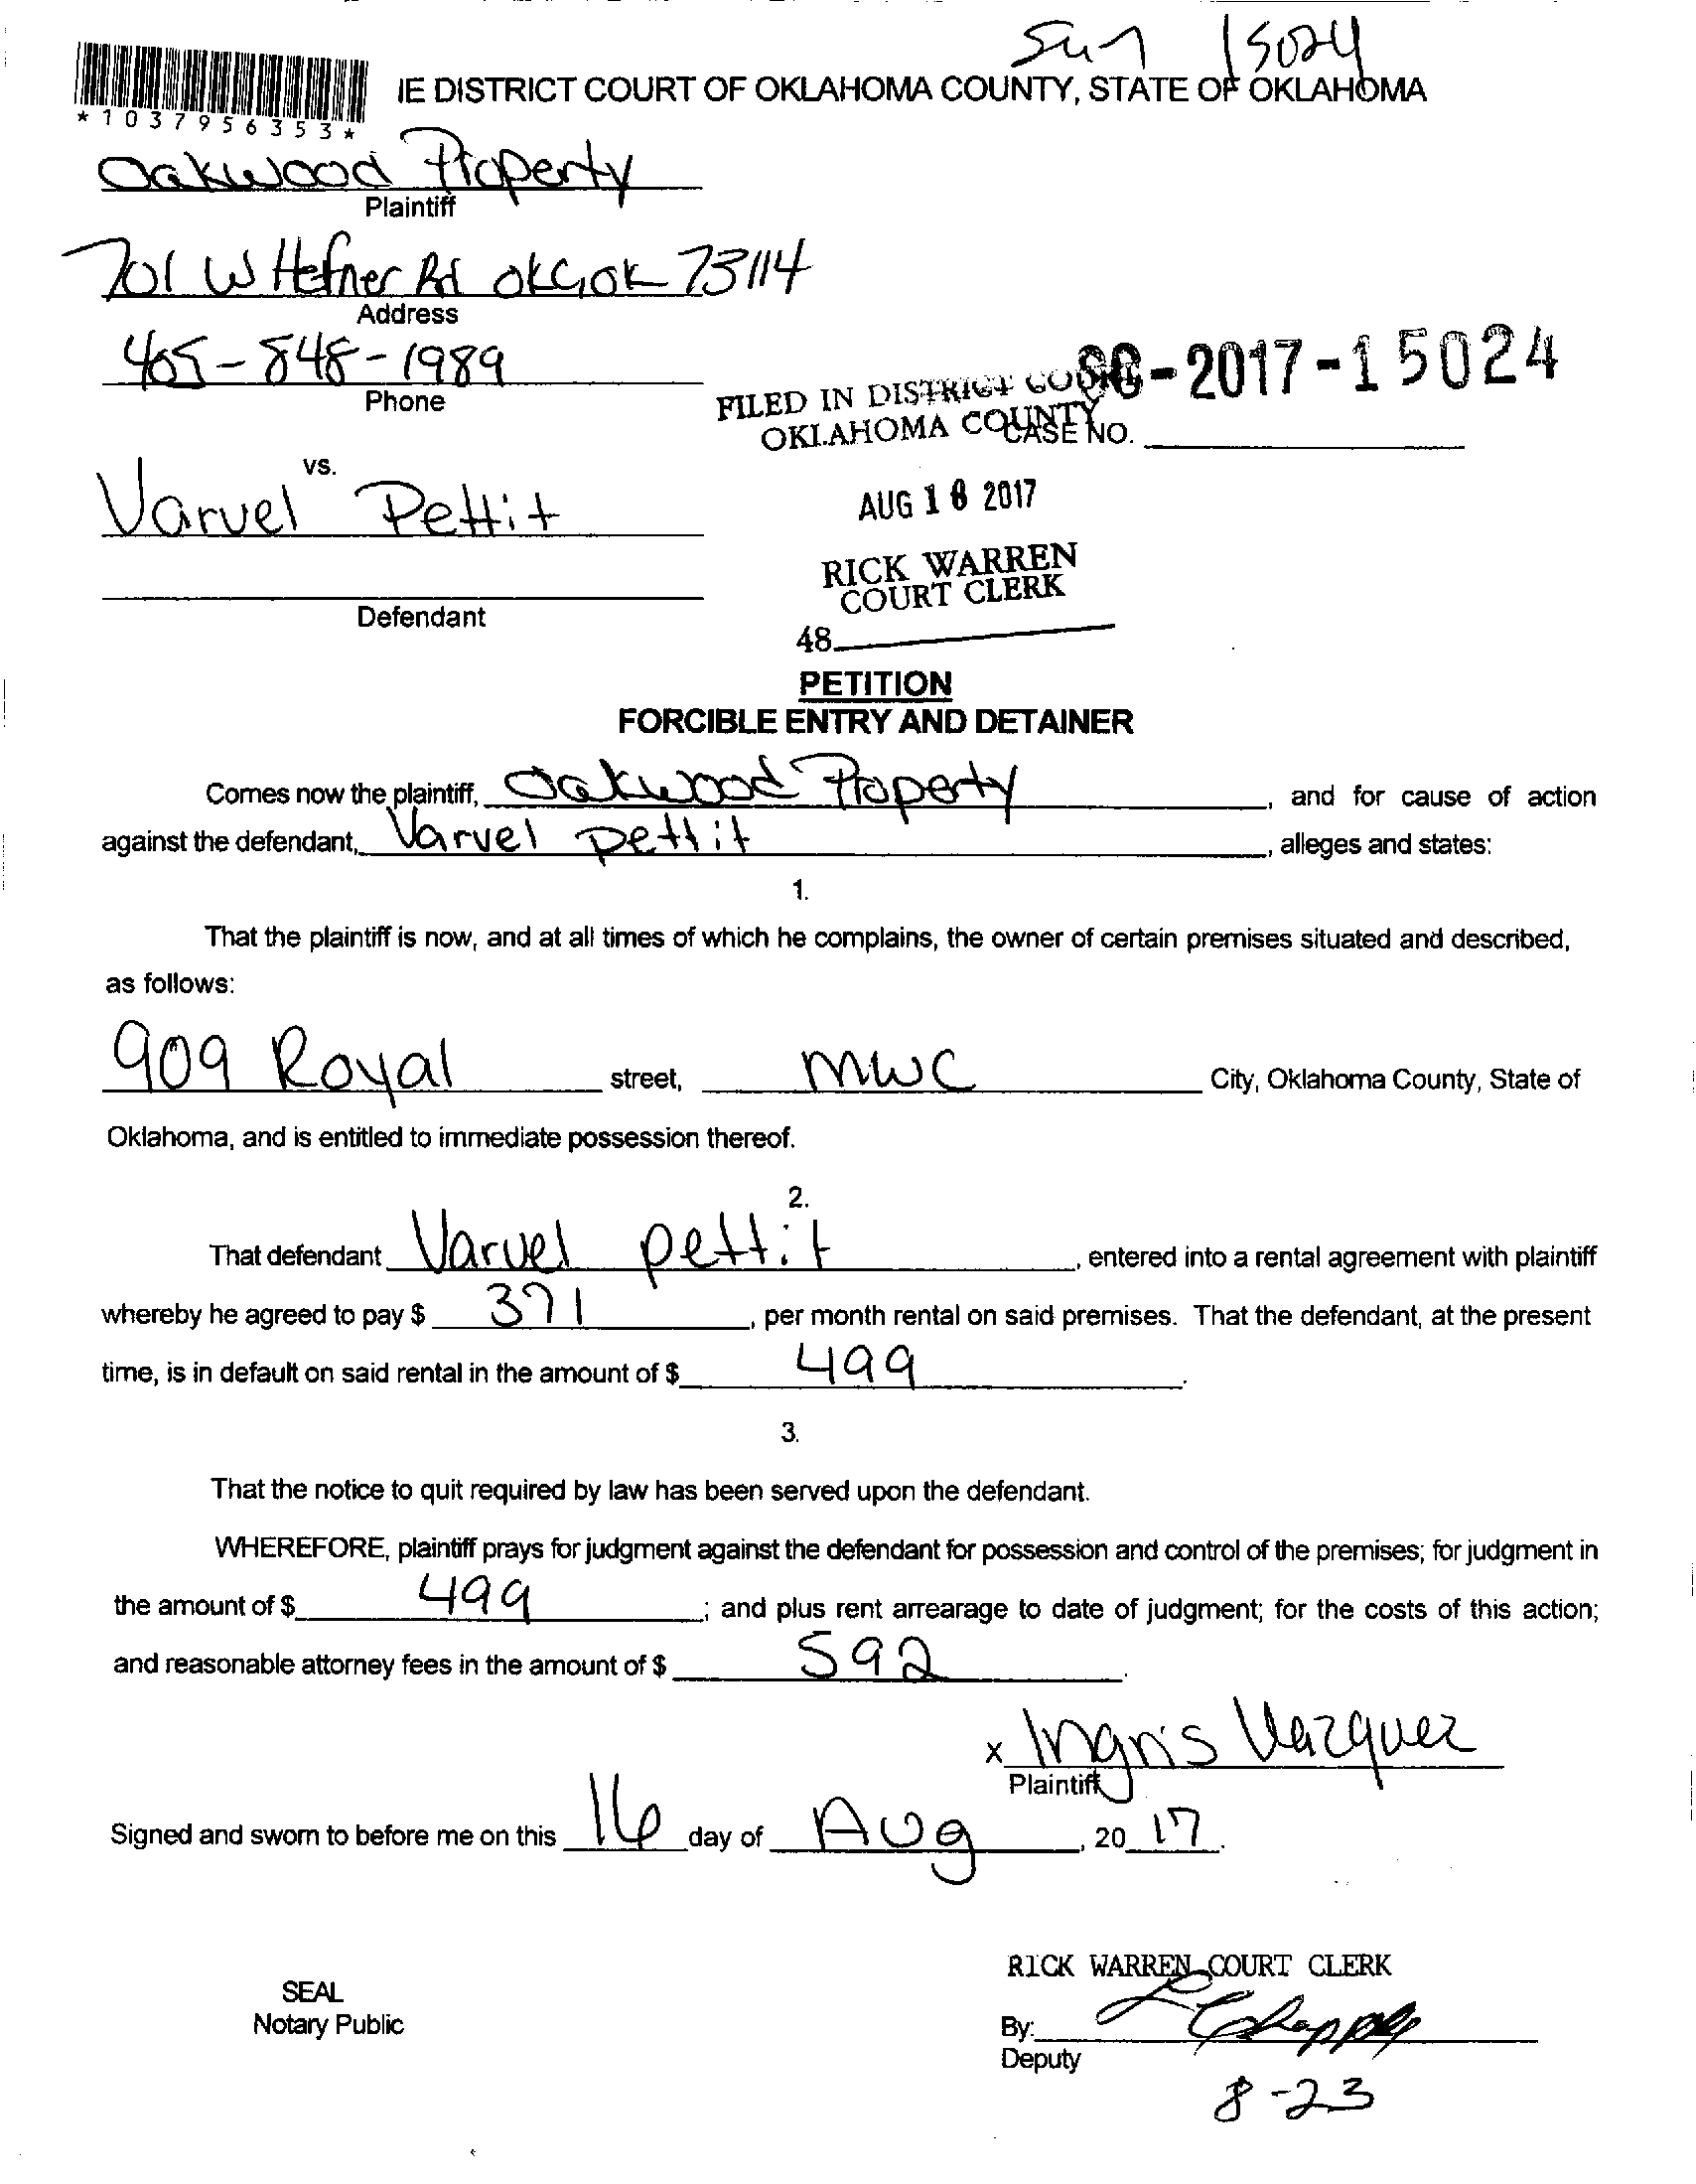 Sum 15024
IE DISTRICT COURT OF OKLAHOMA COUNTY, STATE OF OKLAHOMA
*1037956353*
Oakwood Property
Plaintiff
701 W Hefner Rd OKC, OK 73114
Address
405-848-1989
Phone
SC-2017-15024
FILED IN DISTRICT COURT
OKLAHOMA COUNTY
CASE NO.
vs.
Varvel Pettit
AUG 16 2017
RICK WARREN
COURT CLERK
Defendant
48
PETITION
FORCIBLE ENTRY AND DETAINER
Comes now the plaintiff, Oakwood Property, and for cause of action
against the defendant, Varvel Pettit, alleges and states:
1.
That the plaintiff is now, and at all times of which he complains, the owner of certain premises situated and described,
as follows:
909 Royal street, MWC City, Oklahoma County, State of
Oklahoma, and is entitled to immediate possession thereof.
2.
That defendant Varvel pettit, entered into a rental agreement with plaintiff
whereby he agreed to pay $ 371, per month rental on said premises. That the defendant, at the present
time, is in default on said rental in the amount of $ 499.
3.
That the notice to quit required by law has been served upon the defendant.
WHEREFORE, plaintiff prays for judgment against the defendant for possession and control of the premises; for judgment in
the amount of $ 499; and plus rent arrearage to date of judgment; for the costs of this action;
and reasonable attorney fees in the amount of $ 592.
x Ingris Vazquez
Plaintiff
Signed and sworn to before me on this 16 day of Aug, 20 17.
RICK WARREN COURT CLERK
SEAL
Notary Public
By:
Deputy
8-23